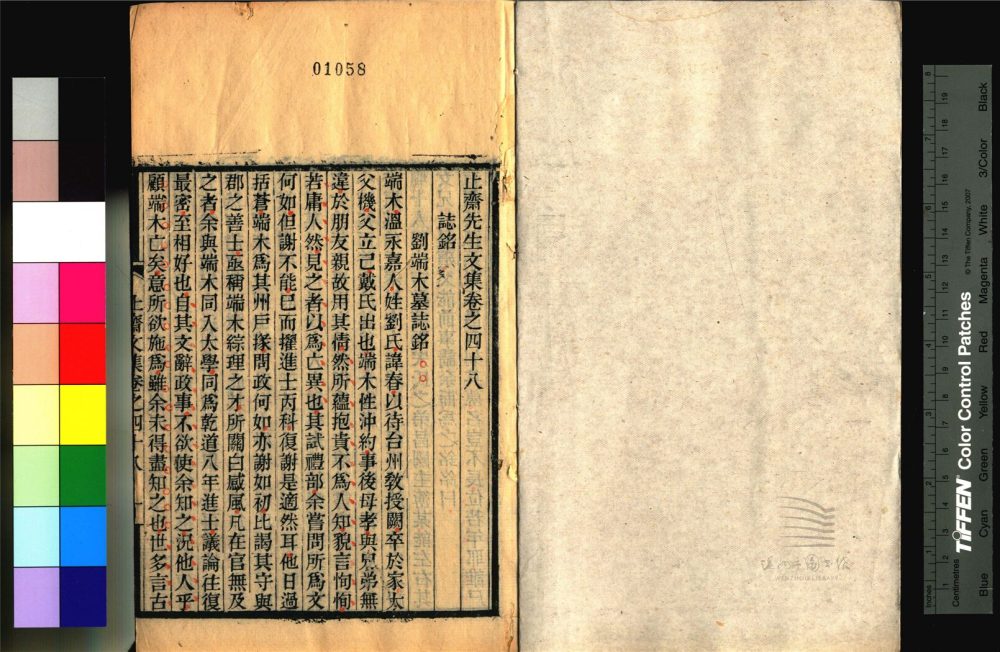 01058
止齋先生文集卷之四十八
誌銘
劉端木墓誌銘
端木溫永嘉人姓劉氏諱春以待台州敎授闕卒於家大
父機父立己戴氏出也端木性沖約事後母孝與兄弟無
違於朋友親故用其情然所蘊抱貴不爲人知貌言恂恂
若庸人然見之者以爲亡異也其試禮部余嘗問所爲文
何如但謝不能巳而擢進士丙科復謝是適然耳他日過
括蒼端木爲其州戸掾問政何如亦謝如初比謁其守與
郡之善士亟稱端木綜理之才所關白感風凡在官無及
之者余與端木同入太學同爲乾道八年進士議論往復
最密至相好也自其文辭政事不欲使余知之況他人乎
顧端木亡矣意所欲施爲雖余未得盡知之也世多言古
止齋文集卷之四十八
WENZHOU LIBRARY
TIFFEN Color Control Patches
© The Tiffen Company, 2007
Inches
Centimetres
Blue
Cyan
Green
Yellow
Red
Magenta
White
3/Color
Black